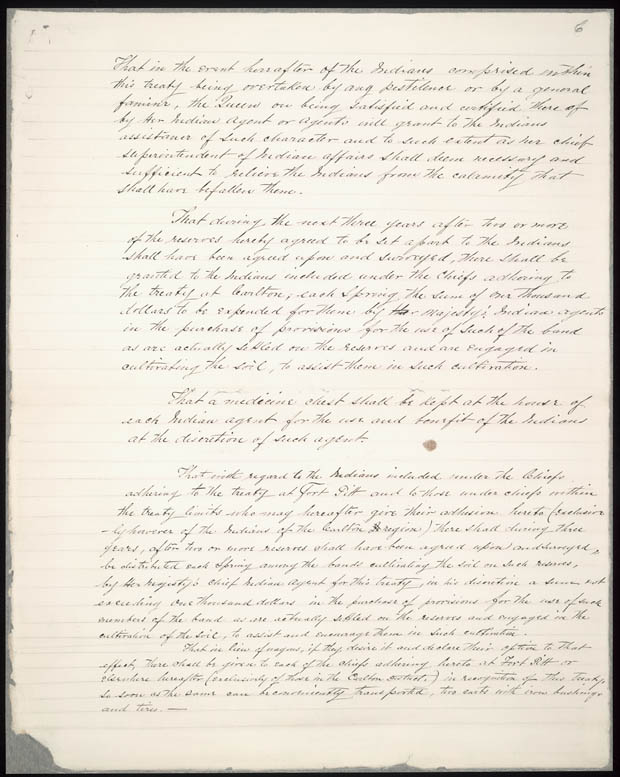 6
That in the event hereafter of the Indians comprised within
this treaty being overtaken by any pestilence or by a general
famine, the Queen on being satisfied and certified there of
by Her Indian Agent or Agents will grant to the Indians
assistance of such character and to such extent as her chief
Superintendent of Indian affairs shall deem necessary and
sufficient to relieve the Indians from the calamity that
shall have befallen them.
That during the next three years after two or more
of the reserves hereby agreed to be set apart to the Indians
shall have been agreed upon and surveyed, there shall be
granted to the Indians included under the Chiefs adhering to
the treaty at Carlton, each Spring the sum of one thousand
dollars to be expended for them by Her Majesty's Indian Agents
in the purchase of provisions for the use of such of the band
as are actually settled on the reserves and are engaged in
cultivating the soil, to assist them in such cultivation.
That a medicine chest shall be kept at the house of
each Indian agent for the use and benefit of the Indians
at the discretion of such agent.
That with regard to the Indians included under the Chiefs
adhering to the treaty at Fort Pitt and to those under chiefs within
the treaty limits who may hereafter give their adhesion hereto (exclusive
-ly however of the Indians of the Carlton region) there shall during three
years, after two or more reserves shall have been agreed upon and surveyed
be distributed each Spring among the bands cultivating the soil on such reserves,
by Her Majesty's Chief Indian Agent for this treaty, in his discretion a sum not
exceeding one thousand dollars in the purchase of provisions for the use of such
members of the band as are actually settled on the reserves and engaged in the
cultivation of the soil, to assist and encourage them in such cultivation.
That in lieu of wagons, if they desire it and declare their option to that
effect, there shall be given to each of the chiefs adhering hereto at Fort Pitt or
elsewhere hereafter (exclusively of those in the Carlton district,) in recognition of this treaty,
so soon as the same can be conveniently transported, two carts with iron bushings
and tires. —